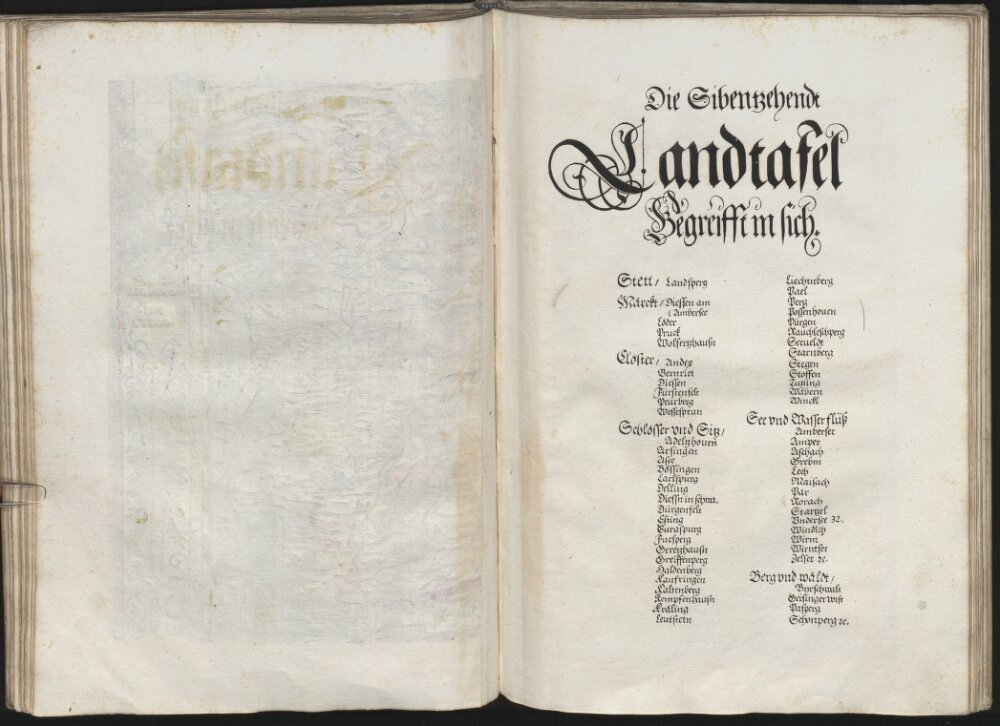 Die Sibentzehendt
Landtafel
Begreifft in sich.
Stett / Landsperg
Märckt / Diessen am
Ambersee
Loder
Pruck
Wolfertzhausn
Clöster / Andex
Bernriet
Diessen
Fürstenfelt
Peurberg
Wessesprun
Schlösser vnd Sitz /
Adeltzhouen
Arfingen
Asee
Bössingen
Carlspurg
Delling
Diessn in schwai.
Dürgenfelt
Efting
Gereghausn
Greiffenperg
Haldenberg
Kaufringen
Kaltenberg
Kempfenhausn
Kräling
Leutstetn
Liechtnberg
Pael
Perg
Possenhouen
Pürgen
Rauchleschperg
Seeueldt
Starnberg
Stegen
Stoffen
Tutzing
Wabern
Winckl
See vnd Wasser flüß
Ambersee
Amper
Aschach
Grebm
Lech
Maisach
Par
Rorach
Startzel
Vndersee 32.
Windach
Wirm
Wirmsee
Zelset ꝛc.
Berg vnd wäldt /
Geisinger wist
Pasperg
Schönperg ꝛc.